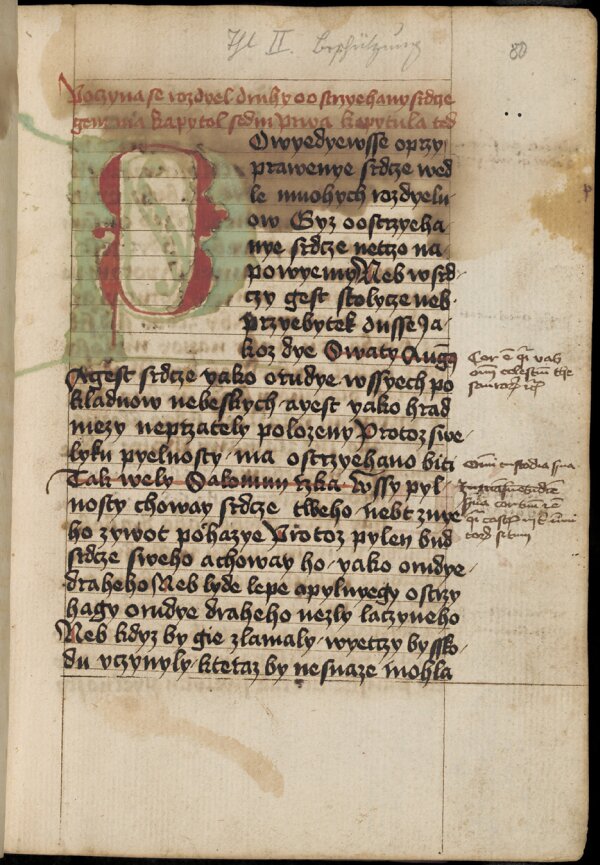 Thl II. Beschützung
80
Poczyna se rozdyel druhy o ostrzyehany srdcze
genz ma kapytol sedm Prwa kapytula ted
Owyedyewsse oprzy
prawenye srdcze wed
le mnohych rozdyelu
ow Gyz oostrzyeha
nye srdcze netczo na
powyemy Neb wsrd
czy gest stolycze neb
przyebytek dusse Ja
koz dye Swaty Aug9
Agest srdcze yako orudye wssyech po
kladuow nebeskych ayest yako hrad
mezy neprzately polozeny Protoz swe
lyku pyelnosty ma ostrzyehano biti
Tak wely Salomun rzka Wssy pyl
nosty choway srdcze tweho nebt znye
ho zywot pohazye Protoz pylen bud
srdcze sweho achoway ho yako orudye
draheho Neb lyde lepe apylnyegy ostrzy
hagy orudye draheho nezly laczyneho
Neb kdyz by gie zlamaly wyetczy by ssko
du vczynyly ktetaz by nesnaze mohla
Cor e vas
celestium the
sauror
Omni custodia serva
cord